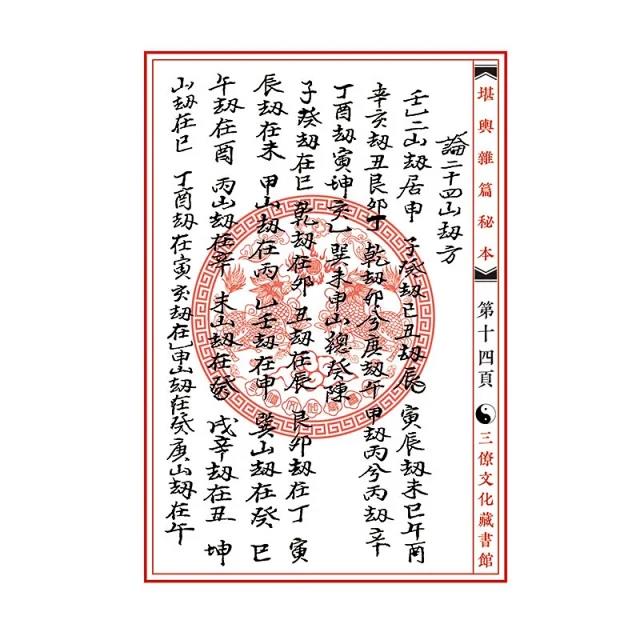 《堪輿雜篇秘本》 第十四頁 三僚文化藏書館
論二十四山刼方
壬乚二山刼居申 子癸刼己丑刼辰 寅辰刼未巳午酉
辛亥刼丑艮卯丁 乾刼卯兮庚刼午 甲刼丙兮丙刼辛
丁酉刼寅坤亥乚 巽未申山總癸陳
子癸刼在巳 乾刼在卯 丑刼在辰 艮卯刼在丁 寅
辰刼在未 甲山刼在丙 乚壬刼在申 巽山刼在癸 巳
午刼在酉 丙山刼在辛 未山刼在癸 戌辛刼在丑 坤
山刼在巳 丁酉刼在寅亥刼在乚申山刼在癸庚山刼在午